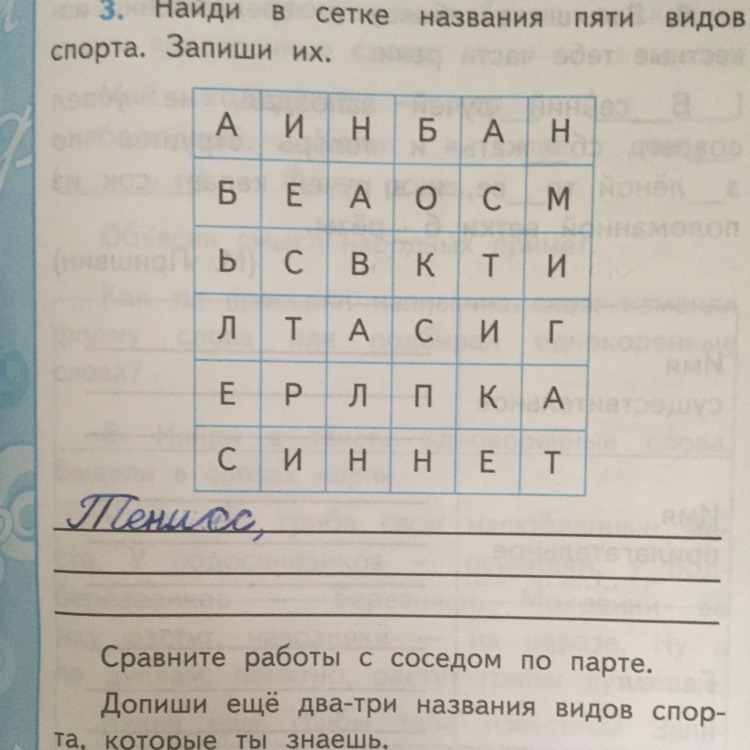 3. Найди в сетке названия пяти видов
спорта. Запиши их.
А И Н Б А Н
Б Е А О С М
Ь С В К Т И
Л Т А С И Г
Е Р Л П К А
С И Н Н Е Т
Тенисс,
Сравните работы с соседом по парте.
Допиши ещё два-три названия видов спор-
та, которые ты знаешь.